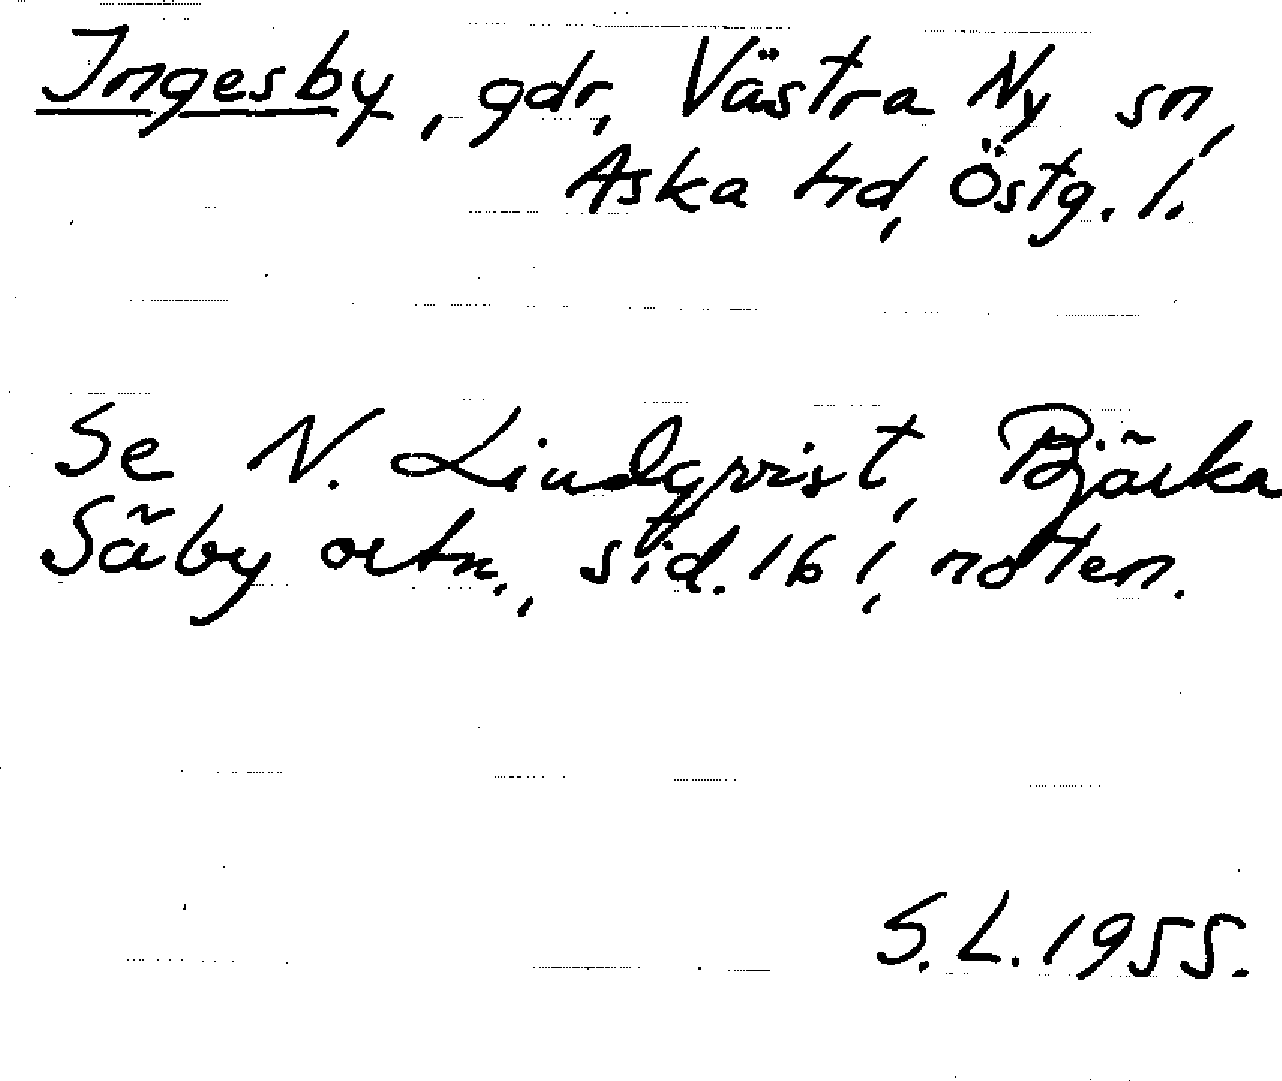 Ingesby, gdr, Västra Ny sn,
Aska hd, Östg. l.
Se N. Lindqvist, Bjärka
Säby ortn., sid. 16 f, noten.
S. L. 1955.